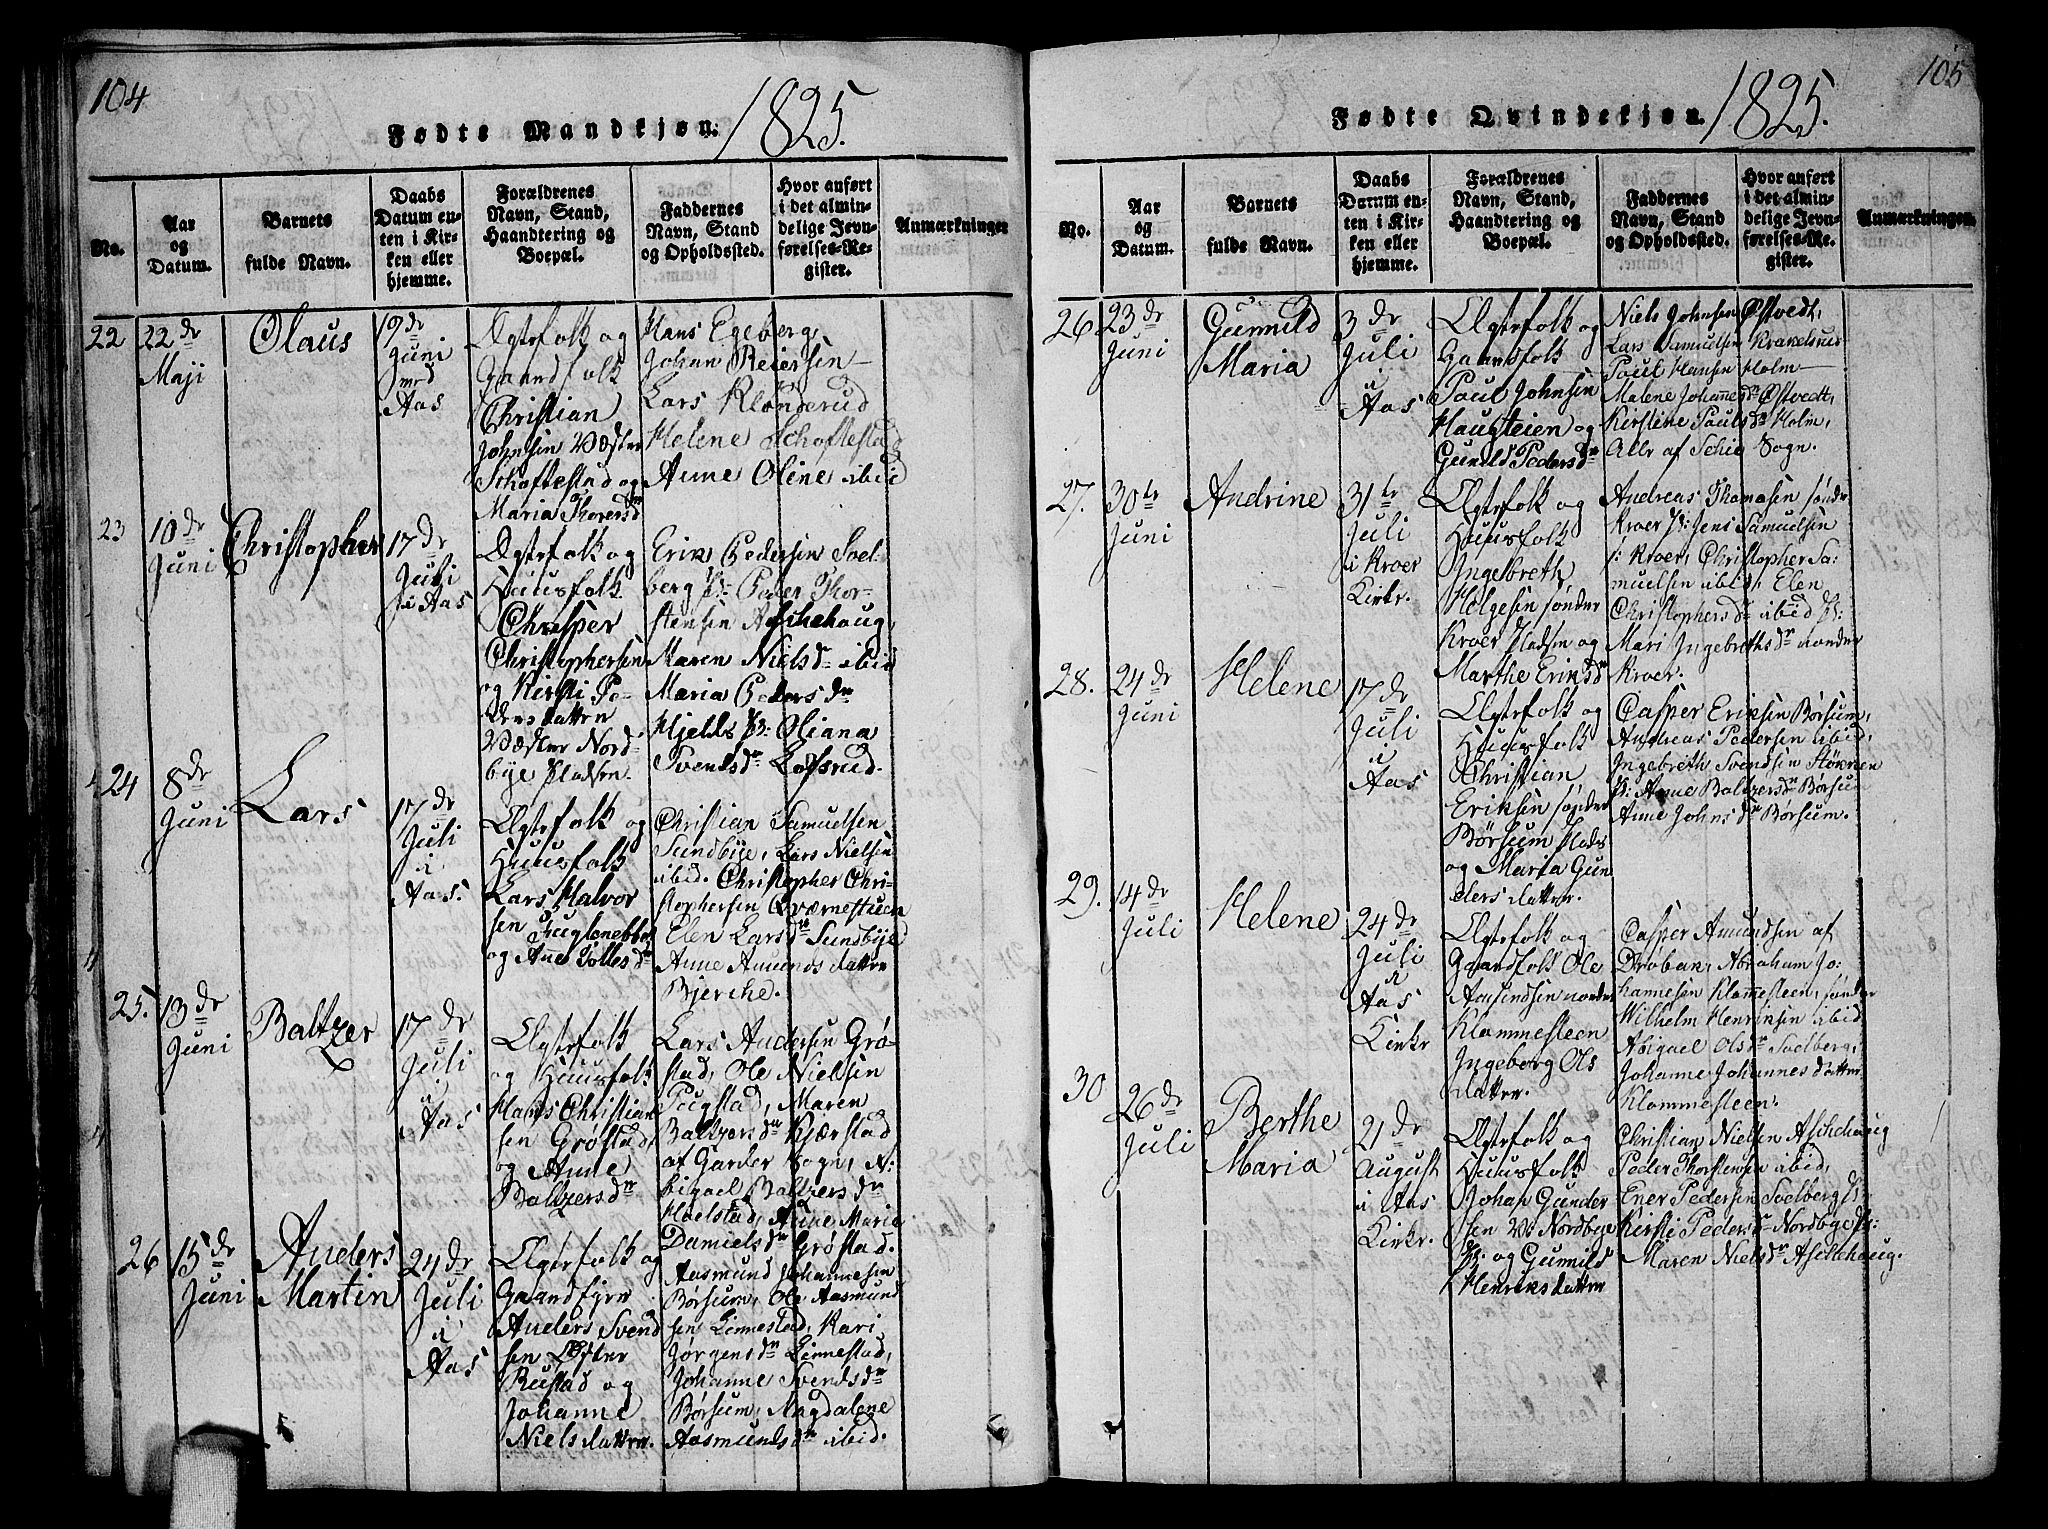 104
Fødte Mandkjøn. 1825.
No.
Aar
og
Datum.
Barnets
fulde Navn.
Daabs
Datum en-
ten i Kir-
ken eller
hjemme.
Forældrenes
Navn, Stand,
Haandtering og
Boepæl.
Faddernes
Navn, Stand
og Opholdssted.
Hvor anført
i det almin-
delige Jevn-
førelses-Re-
gister.
Anmærkninger
22
22de
Maji
Olaus
19de
Juni
Aas
Ægtefolk og
Gaardfolk
Christian
Johnsen Væster
Schoftestad og
Maria Thoresdr
Hans Egeberg,
Johan Reiersen
Lars Klonderud
Helene Schoftestad
Anne Oline ibid
23
10de
Juni
Christopher
17de
Juli
i Aas
Ægtefolk og
Huusfolk
Christopher
Christophersen
og Kirsti Pe-
dersdatter
Væster Nord-
bye Pladsen.
Erik Pedersen Soel
berg Pl: Peder Thor-
stensen Aschehoug,
Maren Nielsdr ibid
Maria Pedersdr
Hjelds Pl: Oliana
Svendsdr Lofsrud.
24
8de
Juni
Lars
17de
Juli
i
Aas.
Ægtefolk og
Huusfolk
Lars Halvor
sen Fuglenebbe
og Ane Tollesdr
Christian Samuelsen
Sundbye, Lars Nielsen
ibid. Christopher Chri-
stophersen Qværnestuen
Elen Larsdr Sundbye
Anne Amunds datter
Bjerche.
25.
13de
Juni
Baltzer
17de
Juli
i
Aas
Ægtefolk
og Huusfolk
Hans Christian
sen Grøstad,
og Anne
Baltzersdr
Lars Andersen Grø-
stad, Ole Nielsen
Pugstad, Maren
Baltzersdr Kjærstad
af Garder Sogn, A:
bigael Baltzersdr
Hoelstad, Anne Maria
Danielsdr Grøstad.
26
15de
Juni
Anders
Martin
24de
Juli
i
Aas
Ægtefolk og
Gaardfyre
Anders Svend
sen Øster
Rustad og
Johanne
Niels datter.
Aasmund Johannesen
Børsum, Ole Aasmund
sen Linnestad, Kari
Jørgensdr Linnestad,
Johanne Svendsdr
Børsum, Magdalene
Aasmundsdr ibid.
105
Fødte Qvindekjøn. 1825.
No.
Aar
og
Datum.
Barnets
fulde Navn.
Daabs
Datum en-
ten i Kir-
ken eller
hjemme.
Forældrenes
Navn, Stand,
Haandtering og
Boepæl.
Faddernes
Navn, Stand
og Opholdssted.
Hvor anført
i det almin-
delige Jevn-
førelses-Re-
gister.
Anmærkninger.
26
23de
Juni
Gunnild
Maria
3de
Juli
i
Aas
Ægtefolk og
Gaardfolk
Poul Johnsen
Haugteien og
Gunild Pedersdr
Niels Johnsen Østvedt,
Lars Samuelsen Krakelsrud
Poul Hansen Holm
Malene Johannesdr Østvedt,
Kirstine Poulsdr Holm,
Alle af Schie Sogn.
27.
30te
Juni
Andrine
31te
Juli
i Kroer
Kirke.
Ægtefolk og
Huusfolk
Ingebreth
Helgesen sønder
Kroer Pladsen og
Marthe Eriksdr
Andreas Thomasen sønder
Kroer Pl: Jens Samuelsen
s: Kroer, Christopher Sa-
muelsen ibid, Elen
Christophersdr ibid Pl:
Mari Ingebrethsdr nordre
Kroer.
28.
24de
Juni
Helene
17de
Juli
i
Aas
Ægtefolk og
Huusfolk
Christian
Eriksen sønder
Børsum Plads
og Maria Gun
ders datter.
Casper Eriksen Børsum,
Andreas Pedersen ibid,
Ingebreth Svendsen Støkken
Pl: Anne Baltzersdr Børsum
Anne Johnsdr Børsum.
29.
14de
Juli
Helene
24de
Juli
i
Aas
Kirke
Ægtefolk og
Gaardfolk Ole
Aasmundsen nordre
Klommesteen
Ingeborg Ols
datter.
Casper Amundsen af
Drøbak, Abraham Jo-
hannesen Klommesteen, sønder
Wilhelm Henriksen ibid
Abigael Olsdr Soelberg,
Johanne Johannesdatter
Klommesteen.
30
26de
Juli
Berthe
Maria
21de
August
i Aas
Kirke.
Ægtefolk og
Huusfolk
Johan Gunder
sen V: Nordbye
Pl. og Gunnild
Henriksdatter
Christian Nielsen Aschehoug
Peder Thorstensen ibid,
Ener Pedersen Soelberg Pl:
Kirsti Pedersdr Nordbye Pl:
Maren Nielsdr Aschehoug.